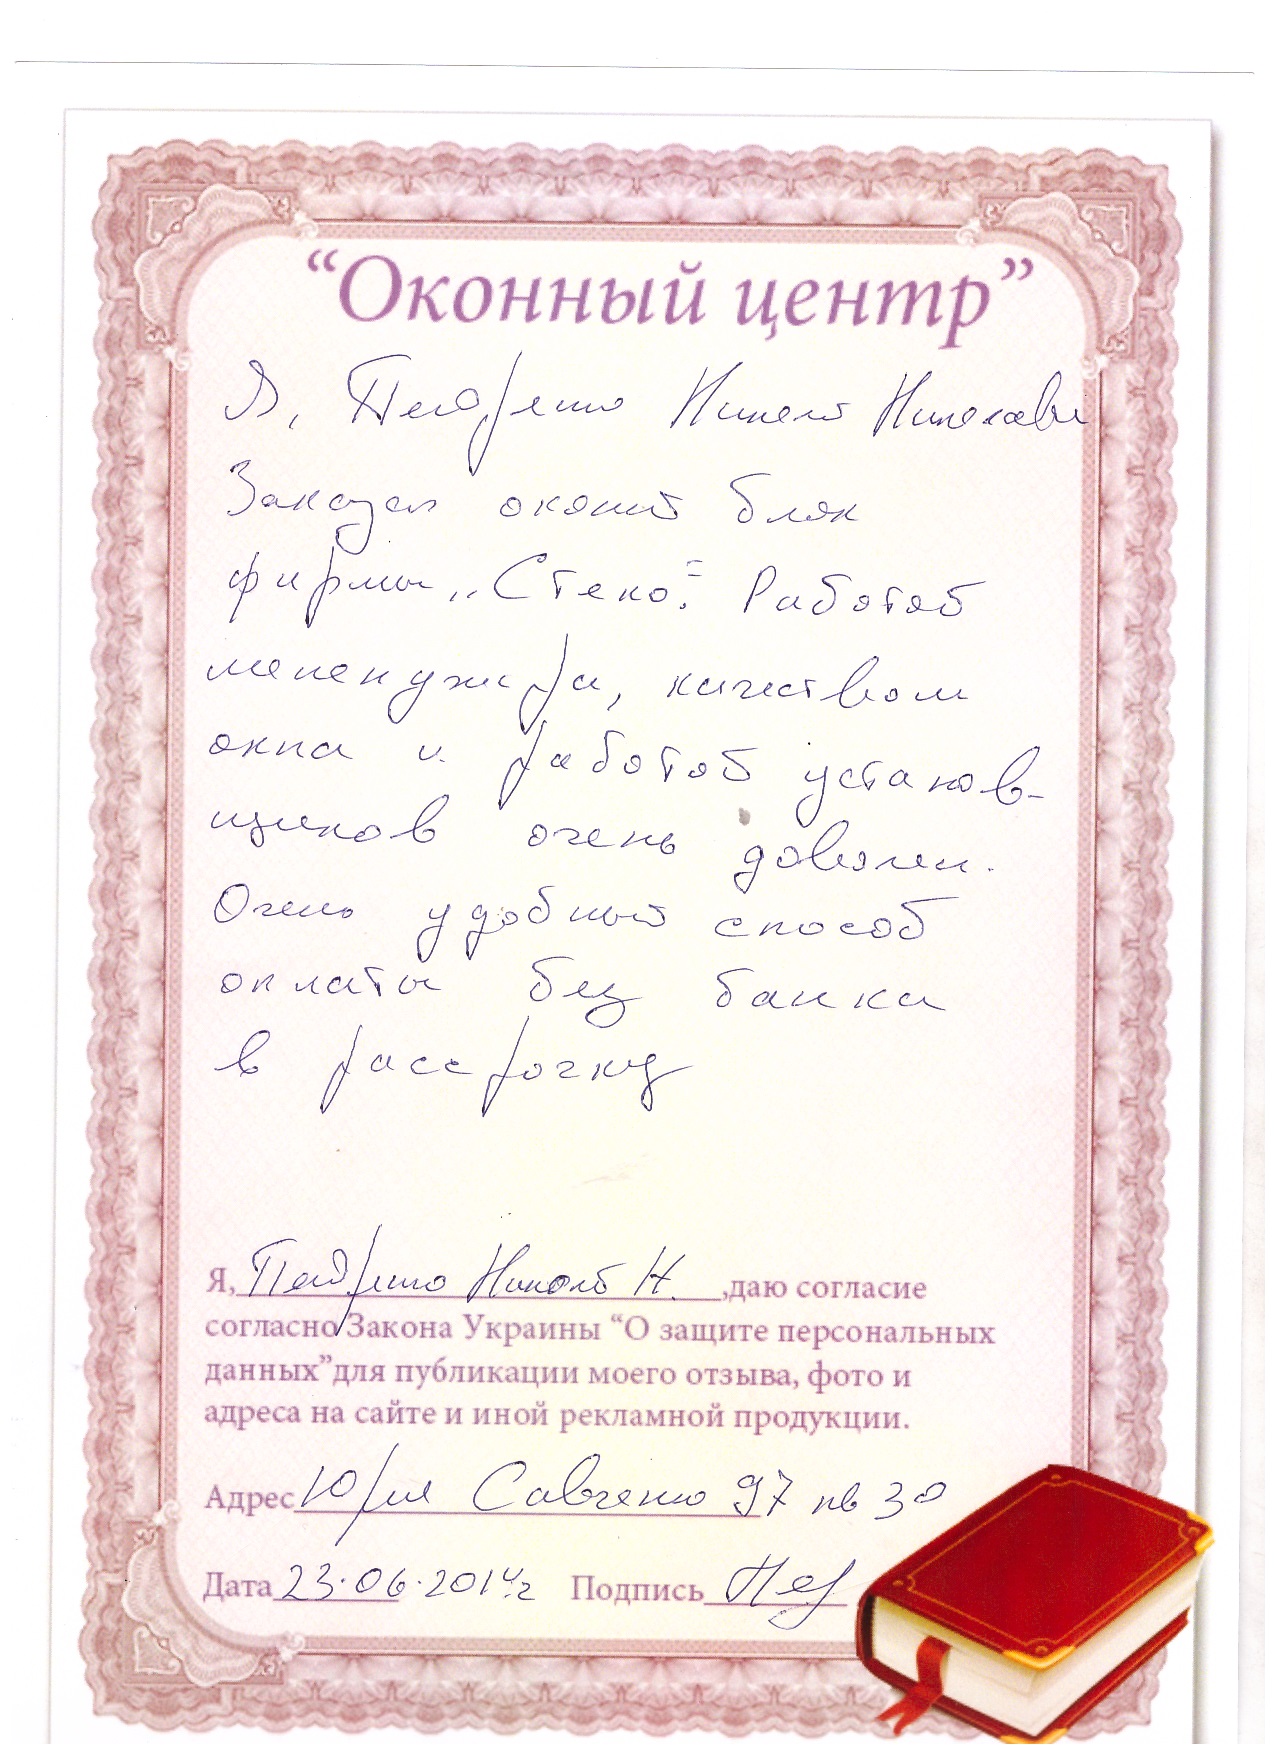 “Оконный центр”
Я,
Заказал оконный блок
фирмы „Стеко". Работой
мененужера, качеством
окна и работой установ-
щиков очень доволен.
Очень удобный способ
оплаты без банка
в рассрочку
Я, Николай Н. ,даю согласие
согласно Закона Украины “О защите персональных
данных”для публикации моего отзыва, фото и
адреса на сайте и иной рекламной продукции.
Адрес Юрия Савченко 97 кв 30
Дата 23.06.2014г Подпись